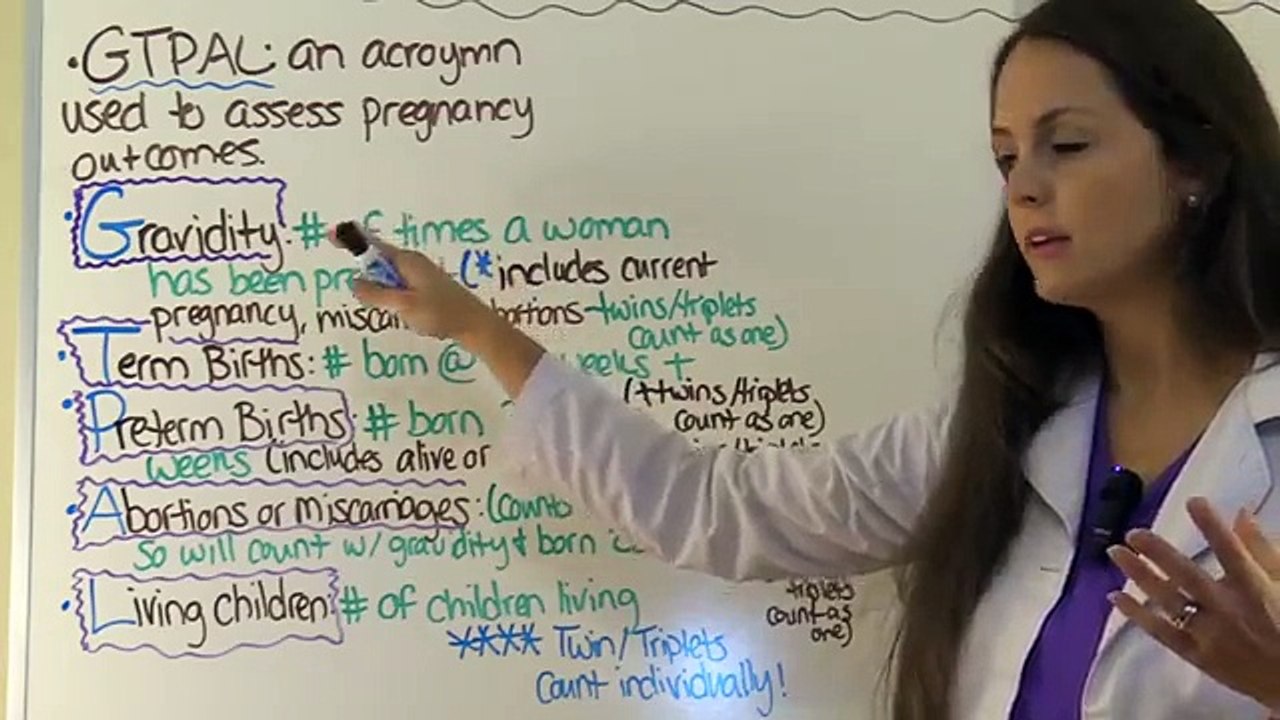 • GTPAL: an acroymn
used to assess pregnancy
outcomes.
• Gravidity: # of times a woman
has been (*includes current
pregnancy, twins/triplets
count as one)
• Term Births: # born @ weeks +
(++twins/triplets
count as one)
• Preterm Births: # born
weeks (includes alive or
• Abortions or miscarriages: (counts
So will count w/ gravidity & born
triplets
count as
one)
• Living children # of children living
**** Twin/Triplets
Count individually!